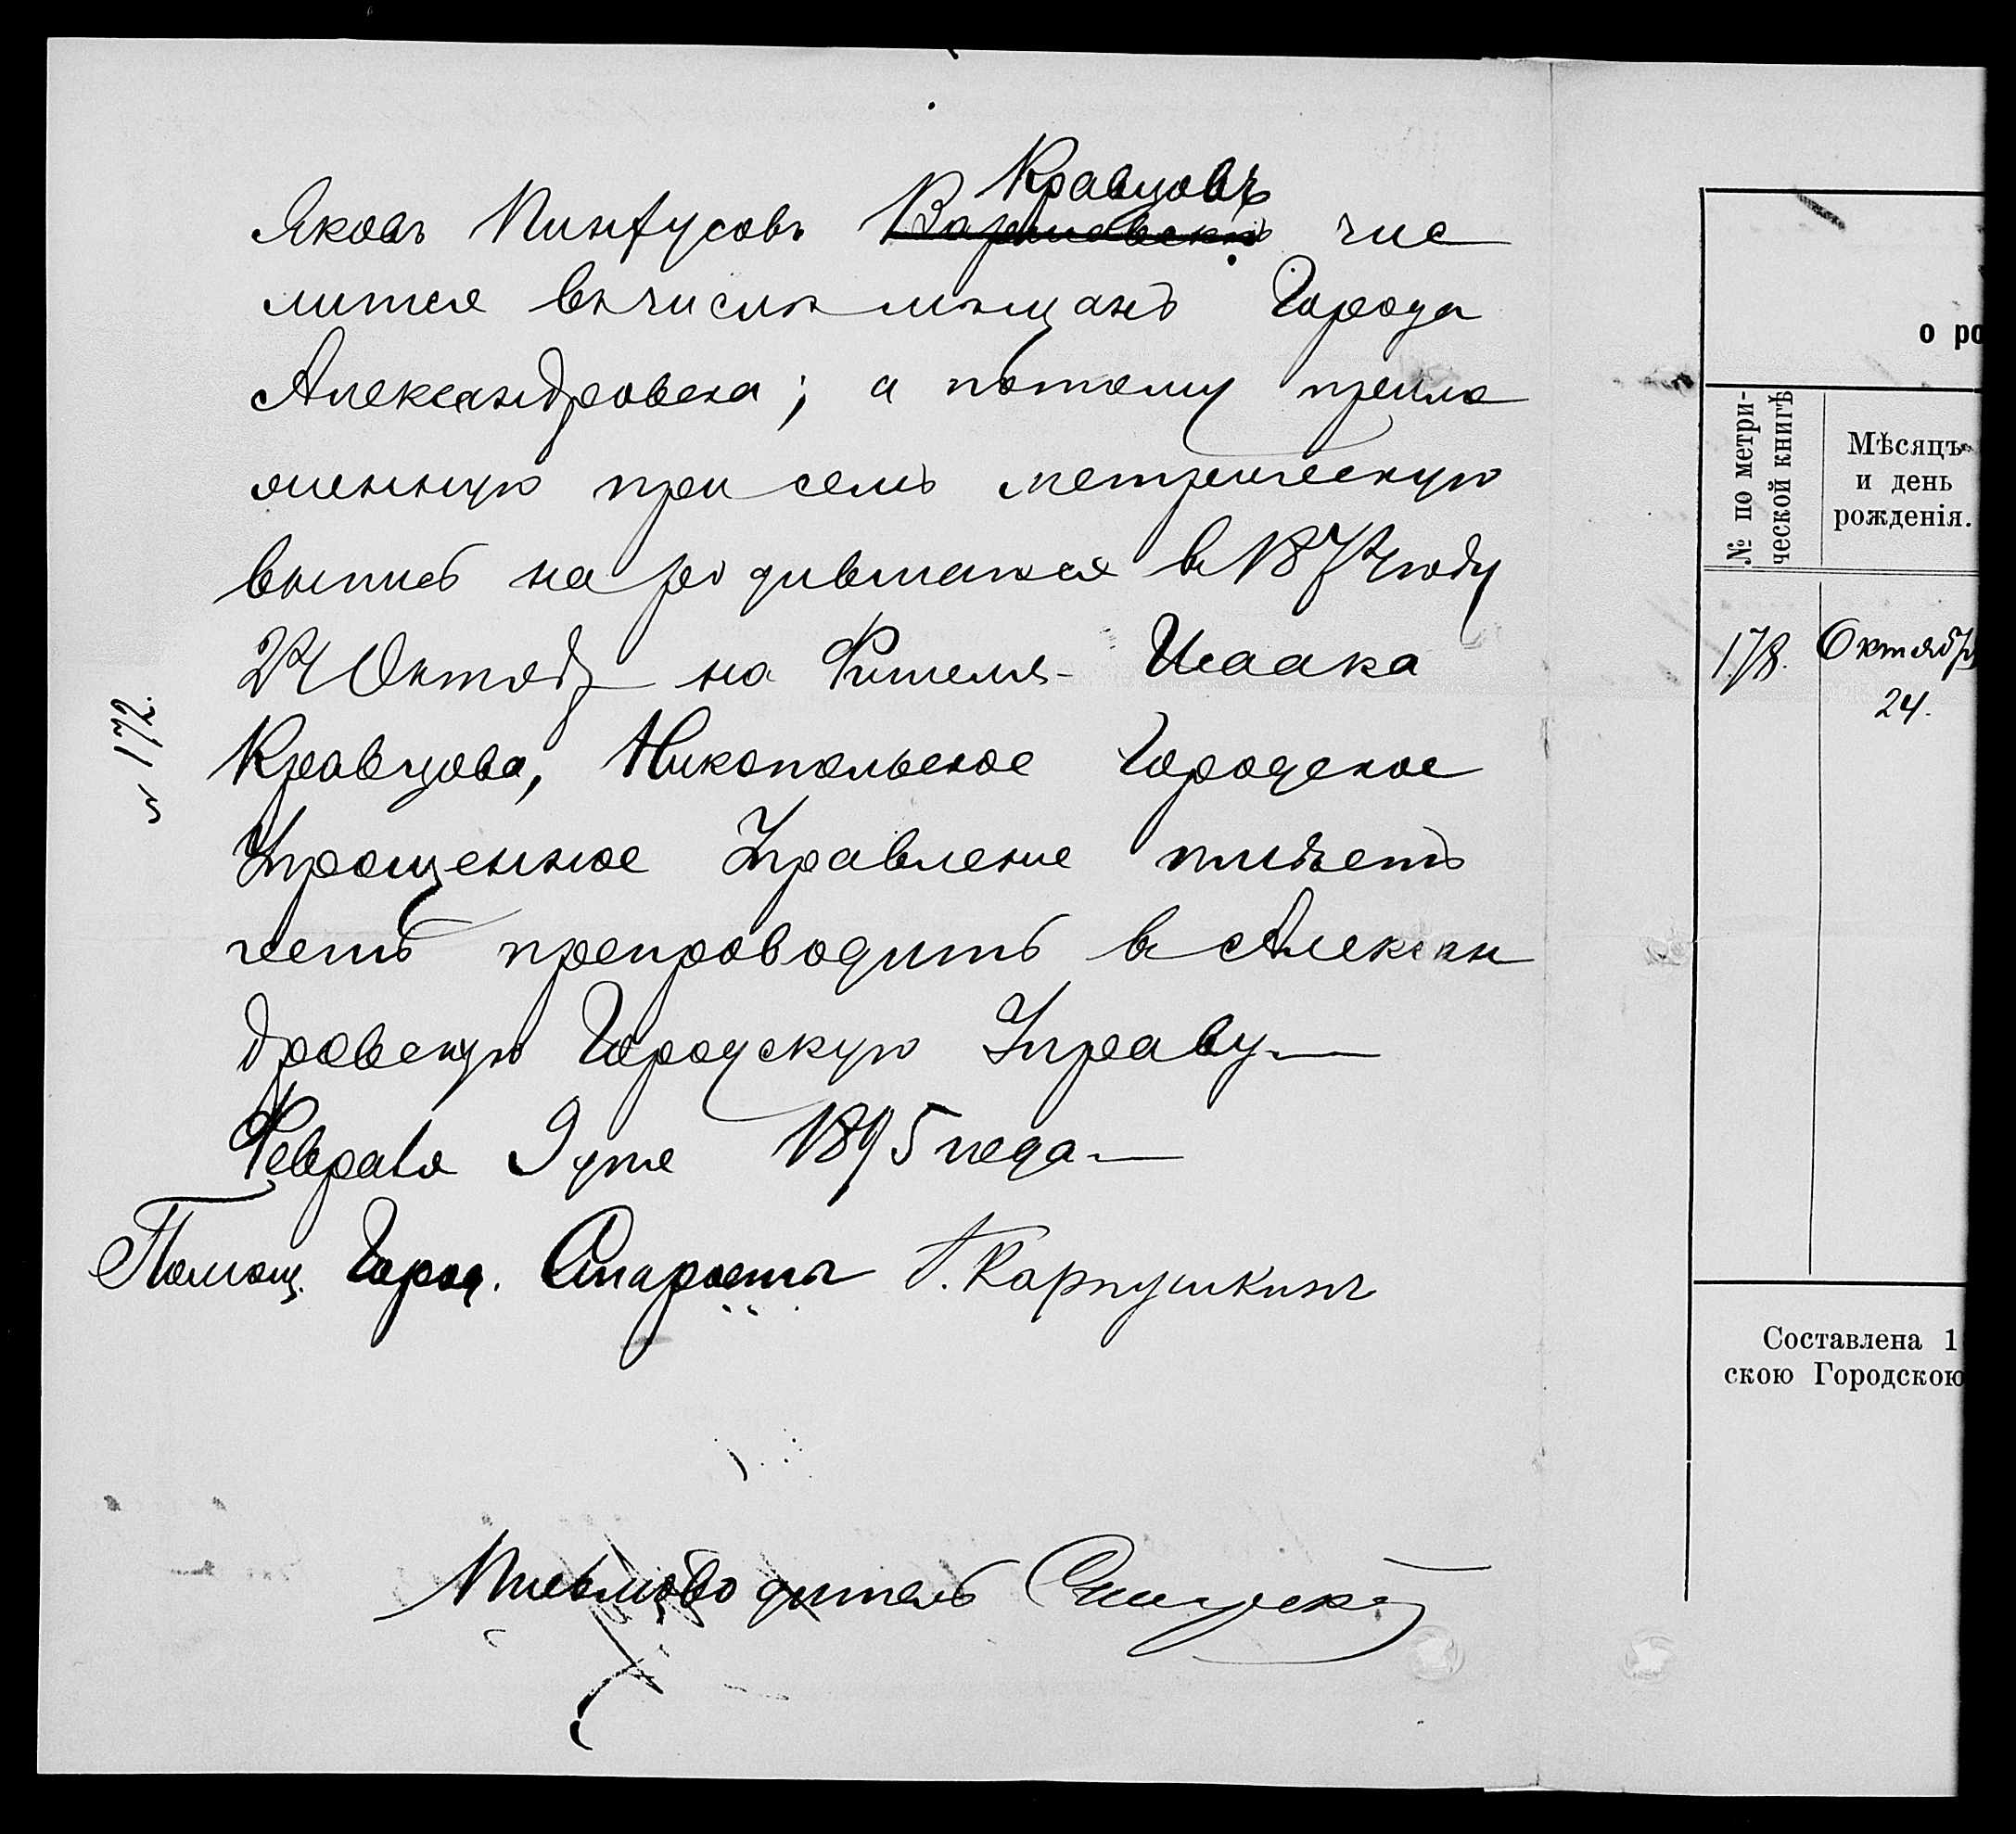 Кравцовъ
Яковъ Пинхусовъ Варшавскій чис
лится въ числѣ мѣщанъ Города
Александровска; а потому прило
женную при семъ метрическую
выпись на родившагося въ 1874 году
24 Октяб на Фишеля- Исаака
Кравцова, Никопольское Городское
Упрощенное Управленіе имѣетъ
честь препроводить въ Алексан
дровскую Городскую Управу
Февраля 9 дня 1895 года
Помощ. Город. Старосты Г. Карпушкинъ
Письмоводитель
№ 172.
о ро
№ по метри-
ческой книгѣ
Мѣсяцъ
и день
рожденія.
178. Октябр
24.
Составлена 1
скою Городскою